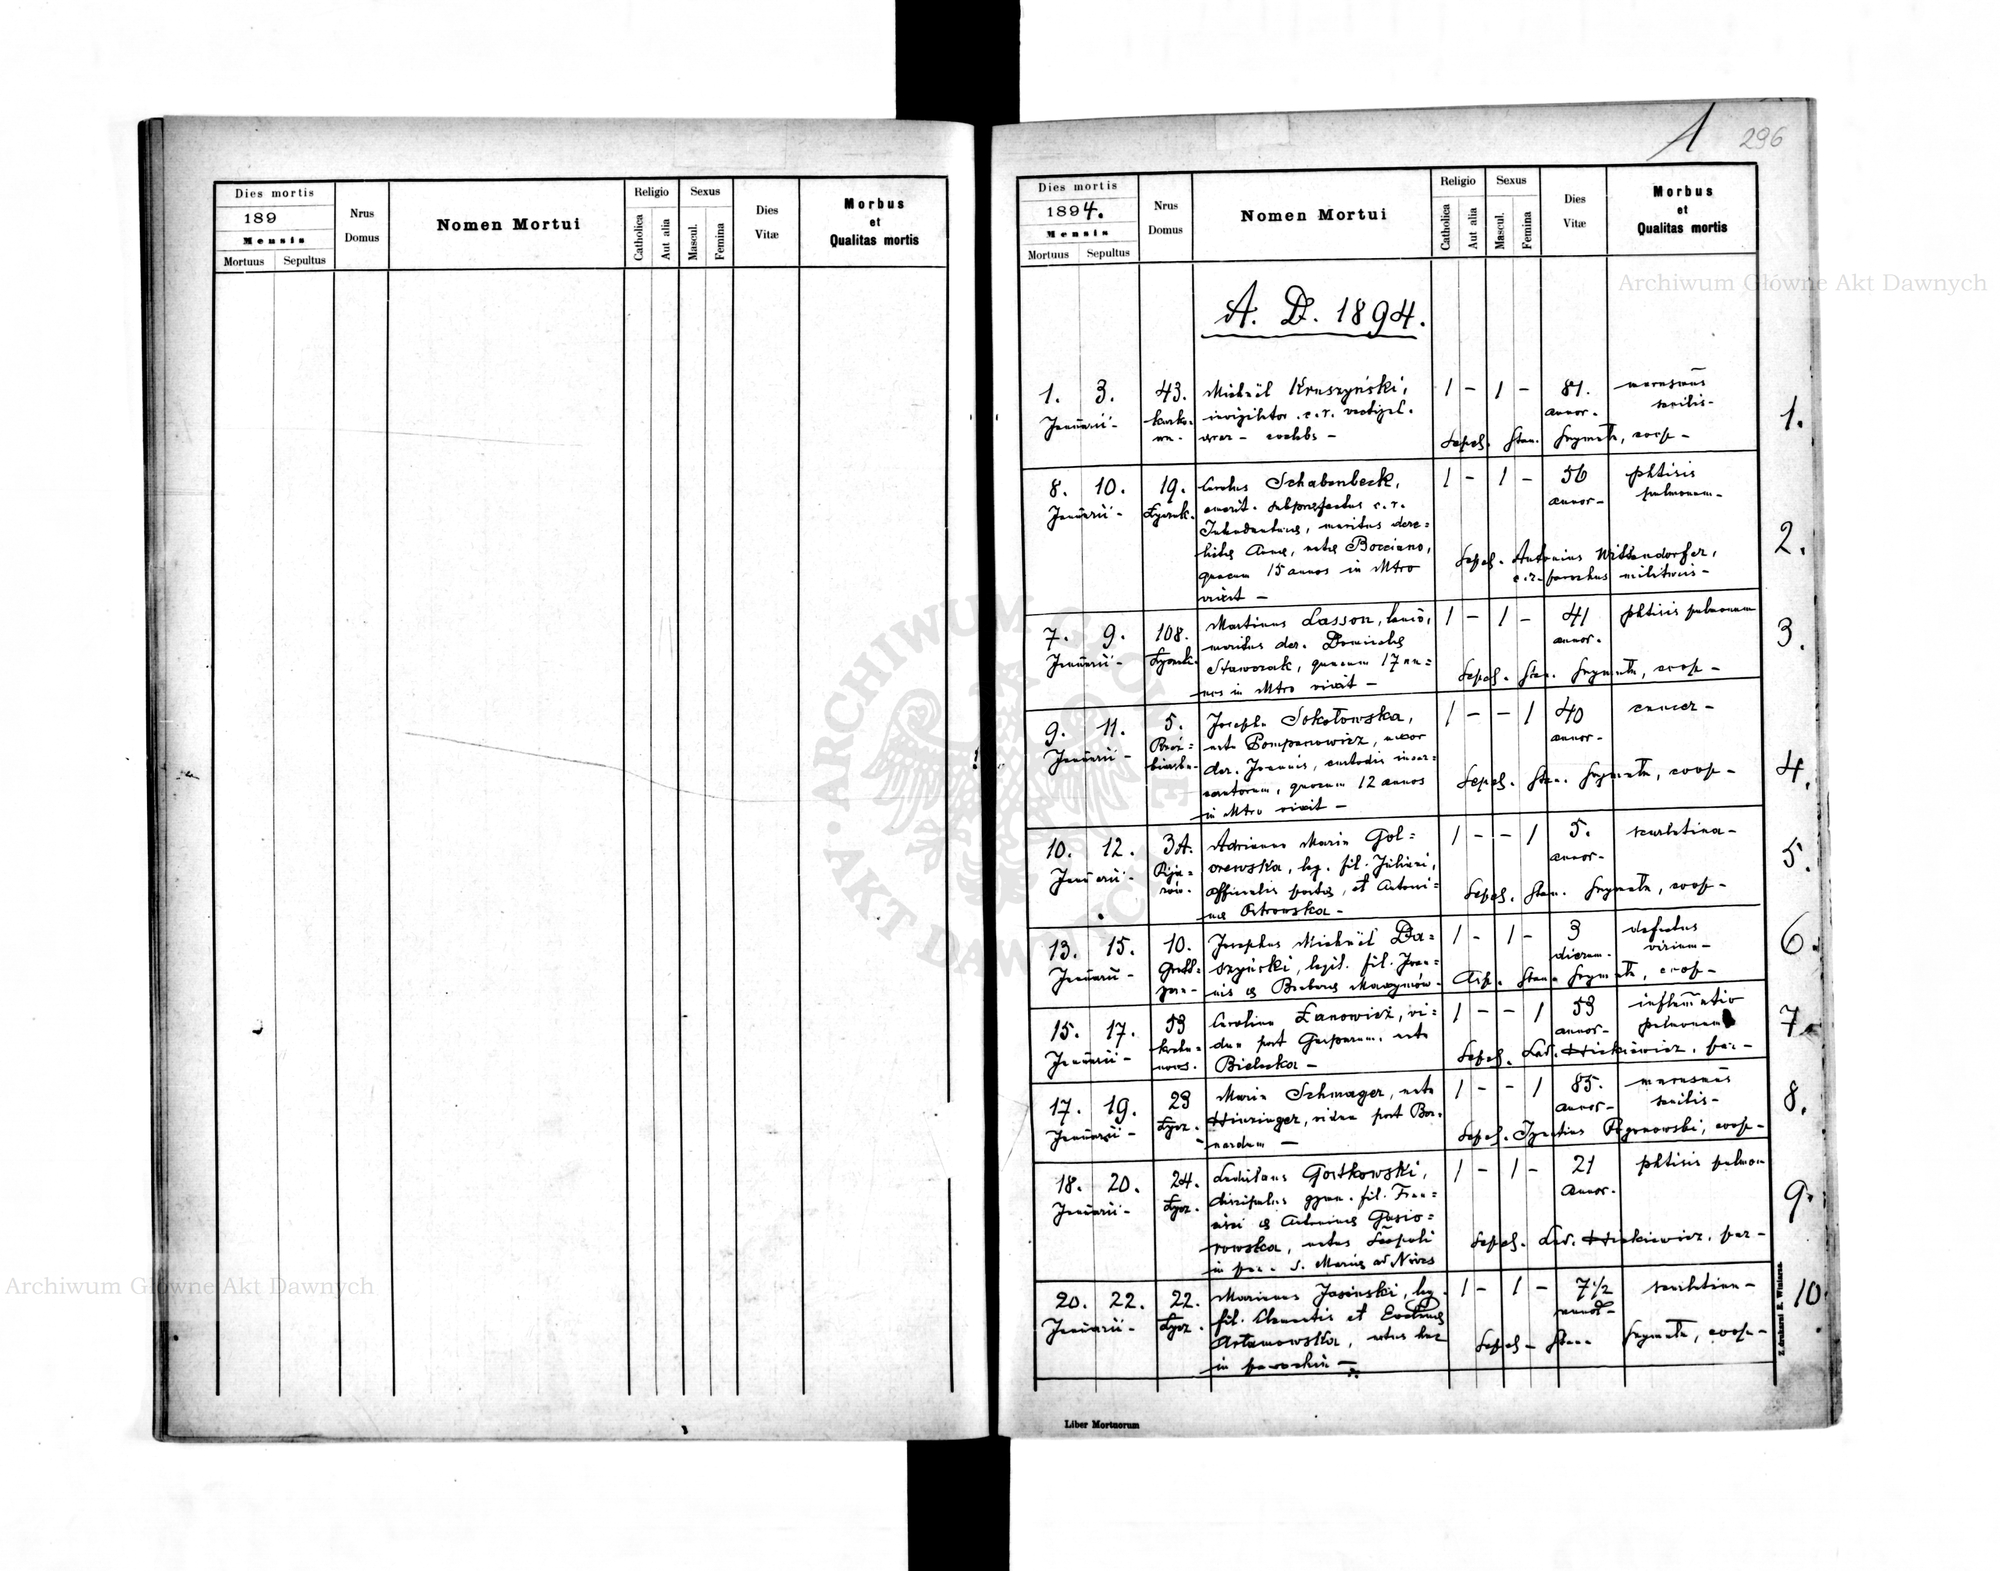 Dies mortis
189
Mensis
Mortuus
Sepultus
Nrus
Domus
Nomen Mortui
Religio
Catholica
Aut alia
Sexus
Mascul.
Femina
Dies
Vitæ
Morbus
et
Qualitas mortis
1
296
Dies mortis
1894.
Mensis
Mortuus
Sepultus
Nrus
Domus
Nomen Mortui
Religio
Catholica
Aut alia
Sexus
Mascul.
Femina
Dies
Vitæ
Morbus
et
Qualitas mortis
A. D. 1894.
1. 3. 43. Michaël Kruszyński, 1 - 1 - 81. marasmus
Januarii - annor. senilis -
coelebs - Sepel. Stan. Szymula, coop -
1.
8. 10. 19. Carolus Schabenbeck, 1 - 1 - 56 phtisis
Januarii - Łyczak. emerit. subpraefectus c. r. annor - pulmonum -
maritus dere=
lictus Annae, natae Bocciano, Sepel. Antonius Wissendorfer,
quacum 15 annos in Mtro c. r. parochus militaris -
vixit -
2.
7. 9. 108. Martinus Lasson, 1 - 1 - 41 phtisis pulmonum
Januarii - Łyczak. maritus der. Dominicae annor.
Stawczak, quacum 17 an= Sepel. Stan. Szymula, coop -
nos in Mtro vixit -
3.
9. 11. 5. Josepha Sokołowska, 1 - - 1 40 cancer -
Januarii - nata Pomparowicz, uxor annor -
der. Joannis, custodis incar= Sepel. Stan. Szymula, coop -
ceratorum, quocum 12 annos
in Mtro vixit -
4.
10. 12. 3A. Adriana Maria Gol= 1 - - 1 5. scarlatina -
Januarii - Pija= czewska, leg. fil. Juliani, annor -
rów. officialis postae, et Antoni= Sepel. Stan. Szymula, coop -
nae Ostrowska -
5.
13. 15. 10. Josephus Michaël Da= 1 - 1 - 3 defectus
Januarii - szyński, legit. fil. Joan= dierum - virium -
nis & Barbarae Maxymów - Stan. Szymula, coop -
6.
15. 17. 53 Carolina Łanowicz, vi= 1 - - 1 53 inflamatio
Januarii - dua post Gasparum, nata annor - pulmonum
Bielecka - Sepel. Lad. Hickiewicz, par -
7.
17. 19. 23 Maria Schwager, nata 1 - - 1 85. marasmus
Januarii - Łycz. Hinzinger, vidua post Ber= annor - senilis -
nardum - Sepel. Ignatius coop -
8.
18. 20. 24. Ladislaus Gostkowski, 1 - 1 - 21 phtisis pulmon
Januarii - Łycz. discipulus gymn. fil. Fran= annor.
cisci & Antoninae Gąsio=
rowska, natus Leopoli Sepel. Lad. Hickiewicz, par -
in par. S. Mariae ad Nives
9.
20. 22. 22. Marianus Jasinski, leg. 1 - 1 - 7 1/2 scarlatina -
Januarii - Łycz. fil. Clementis et Evelinae annor -
Artamowska, natus hac Sepel - Stan. Szymula, coop -
in parochia -
10.
Z drukarni E. Winiarza.
Liber Mortuorum
Archiwum Główne Akt Dawnych
Archiwum Główne Akt Dawnych
ARCHIWUM GŁÓWNE
AKT DAWNYCH